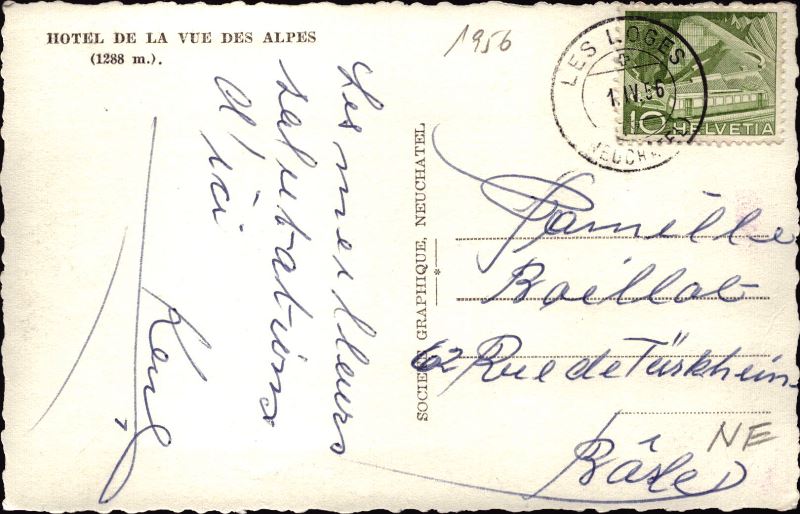 HOTEL DE LA VUE DES ALPES
(1288 m.).
1956
LES LOGES
1.IV.56
10 HELVETIA
Les meilleurs
salutations
d'ici
SOCIÉTÉ GRAPHIQUE, NEUCHATEL
Famille
Baillot
62 Rue de Türkheim
Bâle
NE